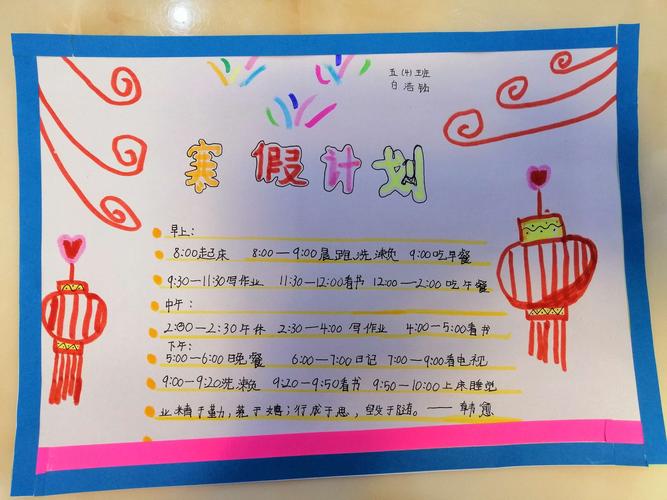 五(4)班
白浩铂
寒假计划
早上:
8:00起床 8:00—9:00晨跑洗漱 9:00吃早餐
9:30—11:30写作业 11:30—12:00看书 12:00—2:00吃午餐
中午:
2:00—2:30午休 2:30—4:00写作业 4:00—5:00看书
下午:
5:00—6:00晚餐 6:00—7:00日记 7:00—9:00看电视
9:00—9:20洗漱 9:20—9:50看书 9:50—10:00上床睡觉
业精于勤,荒于嬉;行成于思,毁于随。——韩愈